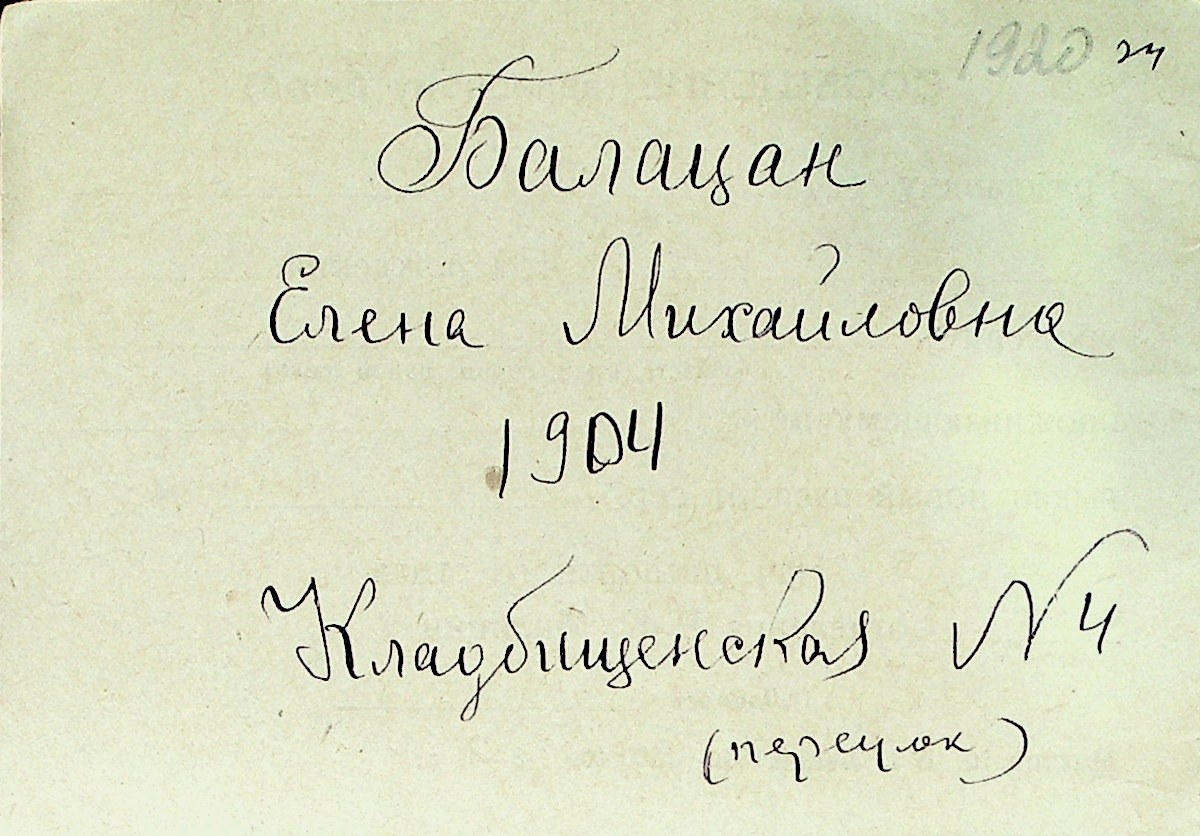 1920
Балацан
Елена Михайловна
1904
Кладбищенская N 4
(переулок)